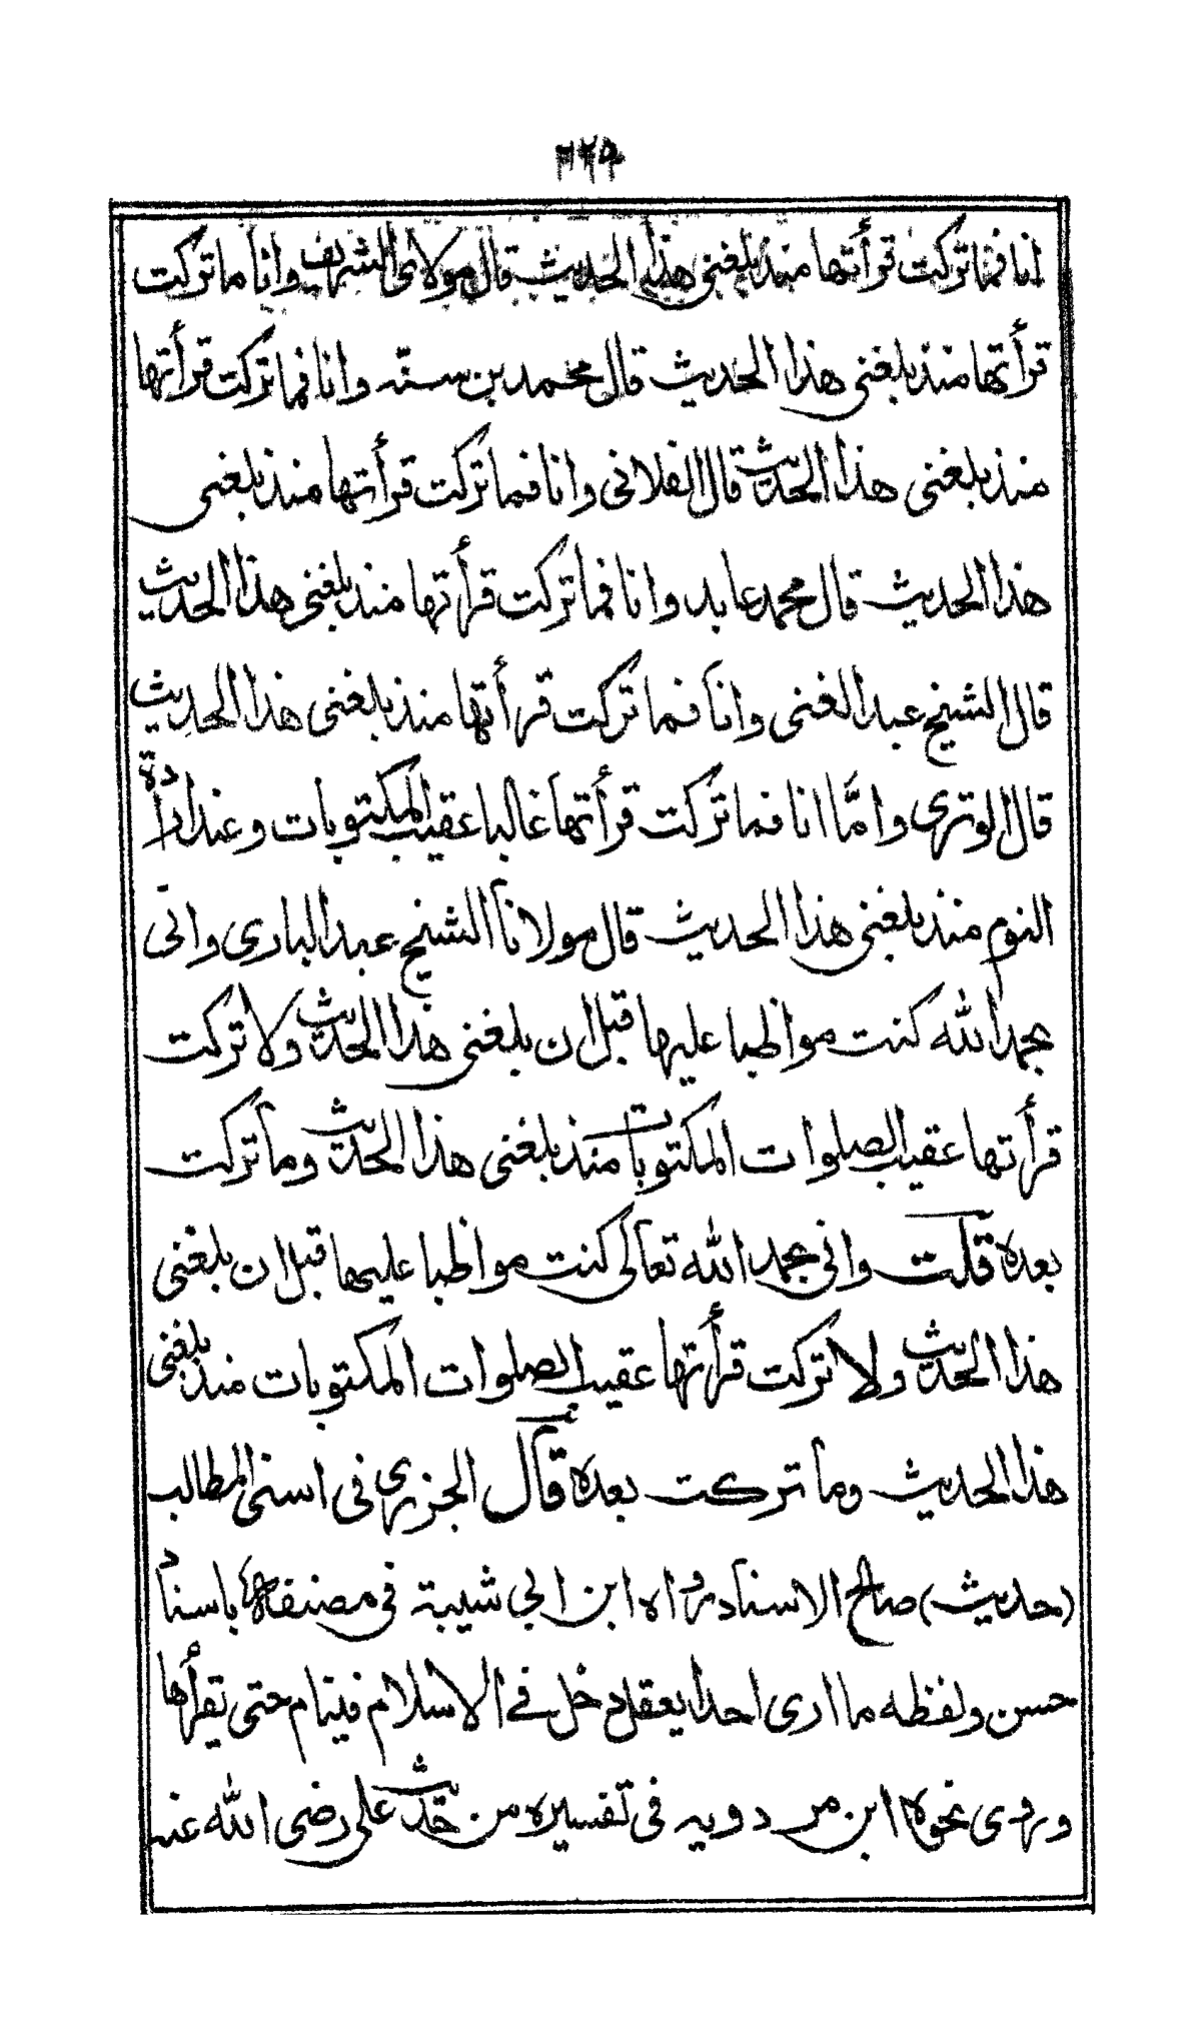 انا فما تركت قرأتها منذ بلغنى هذا الحديث قال مولاى الشريف وانا ما تركت
قرأتها منذ بلغنى هذا الحديث قال محمد بن سنه وانا فما تركت قرأتها
منذ بلغنى هذا الحديث قال الفلانى وانا فما تركت قرأتها منذ بلغنى
هذا الحديث قال محمد عابد وانا فما تركت قرأتها منذ بلغنى هذا الحديث
قال الشيخ عبد الغنى وانا فما تركت قرأتها منذ بلغنى هذا الحديث
قال الوترى وامّا انا فما تركت قرأتها غالبا عقيب المكتوبات وعند ارادة
النوم منذ بلغنى هذا الحديث قال مولانا الشيخ عبد البارى وانّى
بحمد الله كنت مواظبا عليها قبل ان بلغنى هذا الحديث ولا تركت
قرأتها عقيب الصلوات المكتوبات منذ بلغنى هذا الحديث وما تركت
بعده قلت وانى بحمد الله تعالى كنت مواظبا عليها قبل ان بلغنى
هذا الحديث ولا تركت قرأتها عقيب الصلوات المكتوبات منذ بلغنى
هذا الحديث وما تركت بعده قال الجزرى فى اسنى المطالب
(حديث) صالح الاسناد رواه ابن ابي شيبة فى مصنفه باسناد
حسن ولفظه ما ارى احدا يعقل دخل في الاسلام فينام حتى يقرأها
وروى نحوه ابن مردويه فى تفسيره من حديث على رضى الله عنه